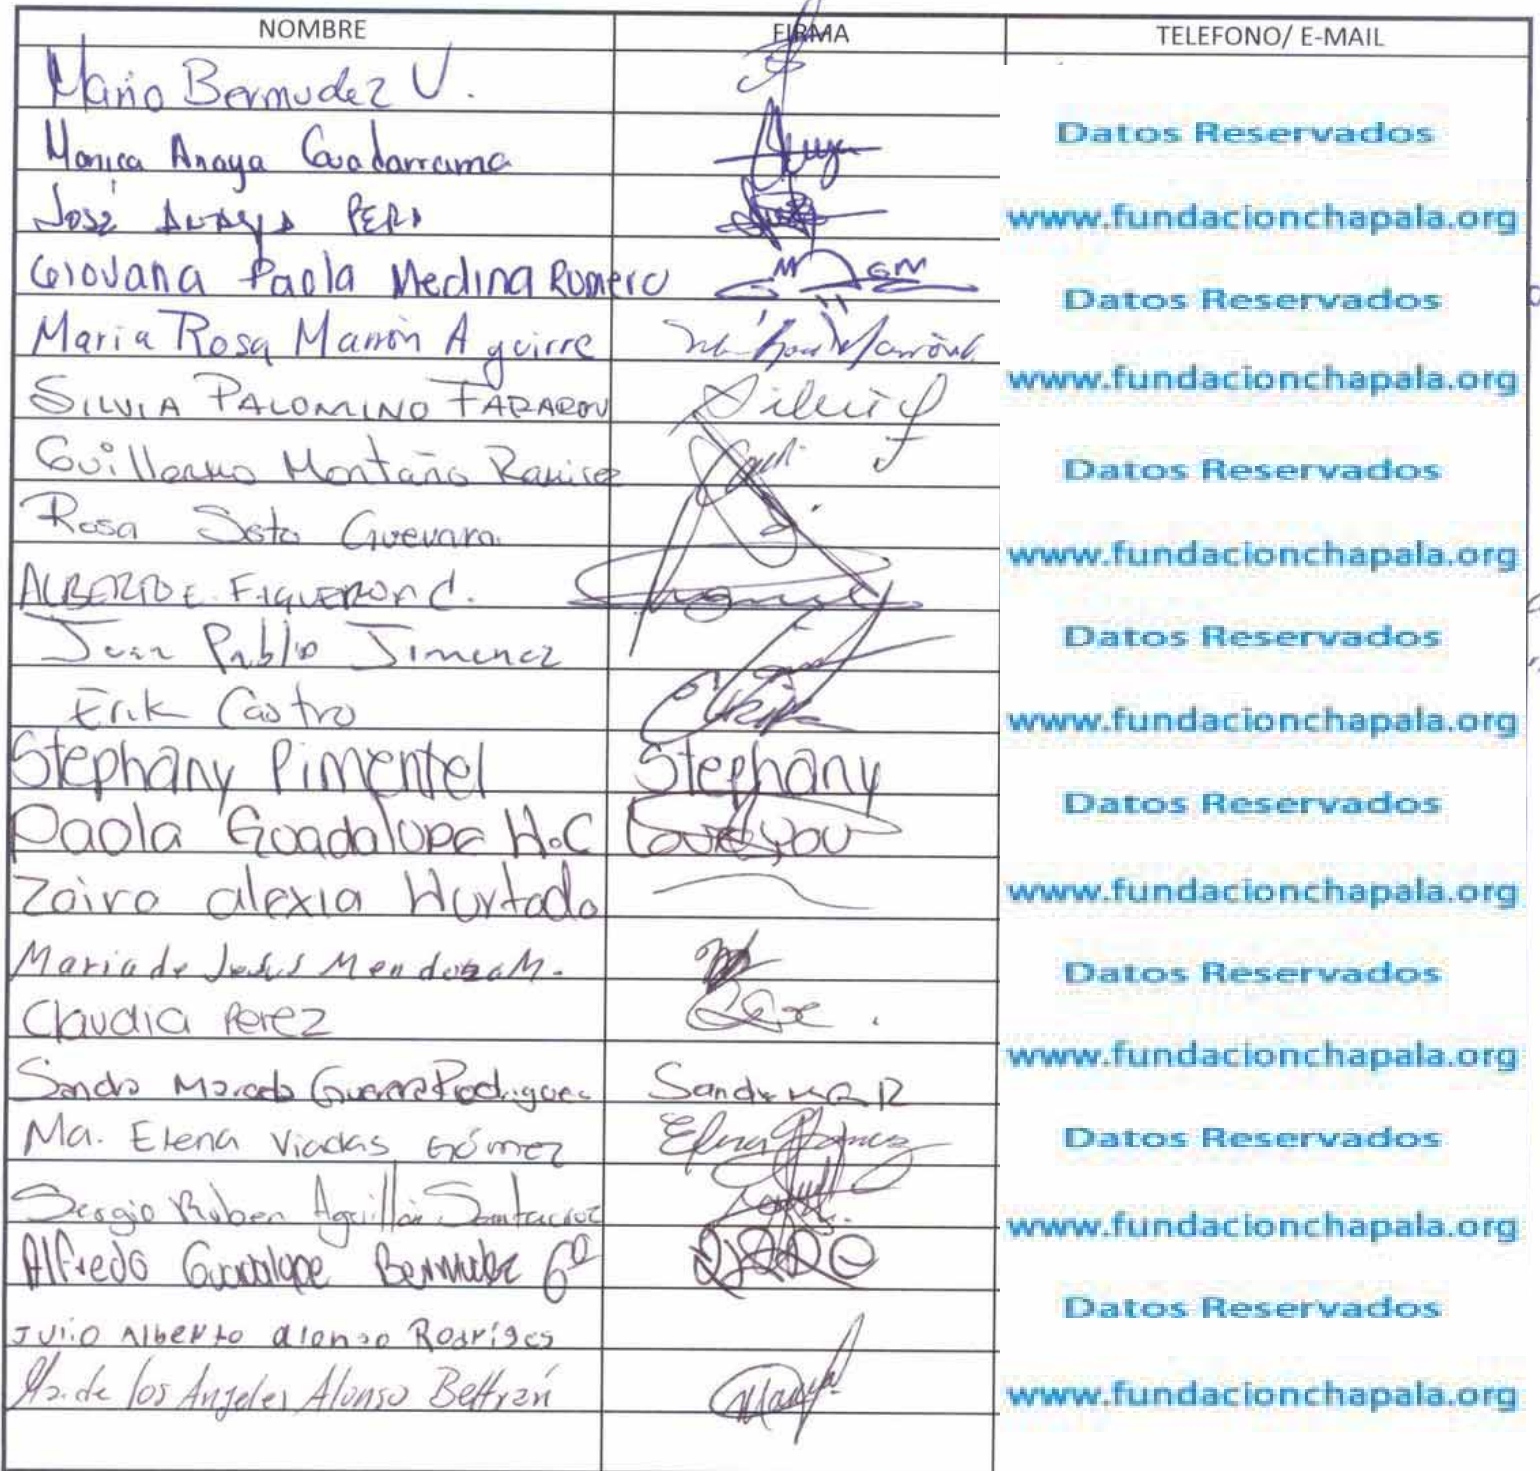 NOMBRE FIRMA TELEFONO/ E-MAIL
Mario Bermudez V.
Monica Anaya Guadarrama
Datos Reservados
José Anaya
www.fundacionchapala.org
Giovana Paola Medina Romero
Datos Reservados
Maria Rosa Marrón Aguirre
www.fundacionchapala.org
SILVIA PALOMINO
Guillermo Montaño Ramirez
Datos Reservados
Rosa Soto Guevara
www.fundacionchapala.org
ALBERTO E. FIGUEROA C.
Juan Pablo Jimenez
Datos Reservados
Erik Castro
www.fundacionchapala.org
Stephany Pimentel Stephany
Paola Guadalupe H.C
Datos Reservados
Zaira alexia Hurtado
www.fundacionchapala.org
Maria de Jesus Mendoza M.
Datos Reservados
Claudia Perez
www.fundacionchapala.org
Sandra Guerra Rodriguez Sandra
Ma. Elena Viadas Gómez
Datos Reservados
Sergio Ruben Aguillón Santacruz
www.fundacionchapala.org
Alfredo Guadalupe Bermudez
Datos Reservados
Julio Alberto alonso Rodriges
Ma. de los Angeles Alonso Beltrán
www.fundacionchapala.org